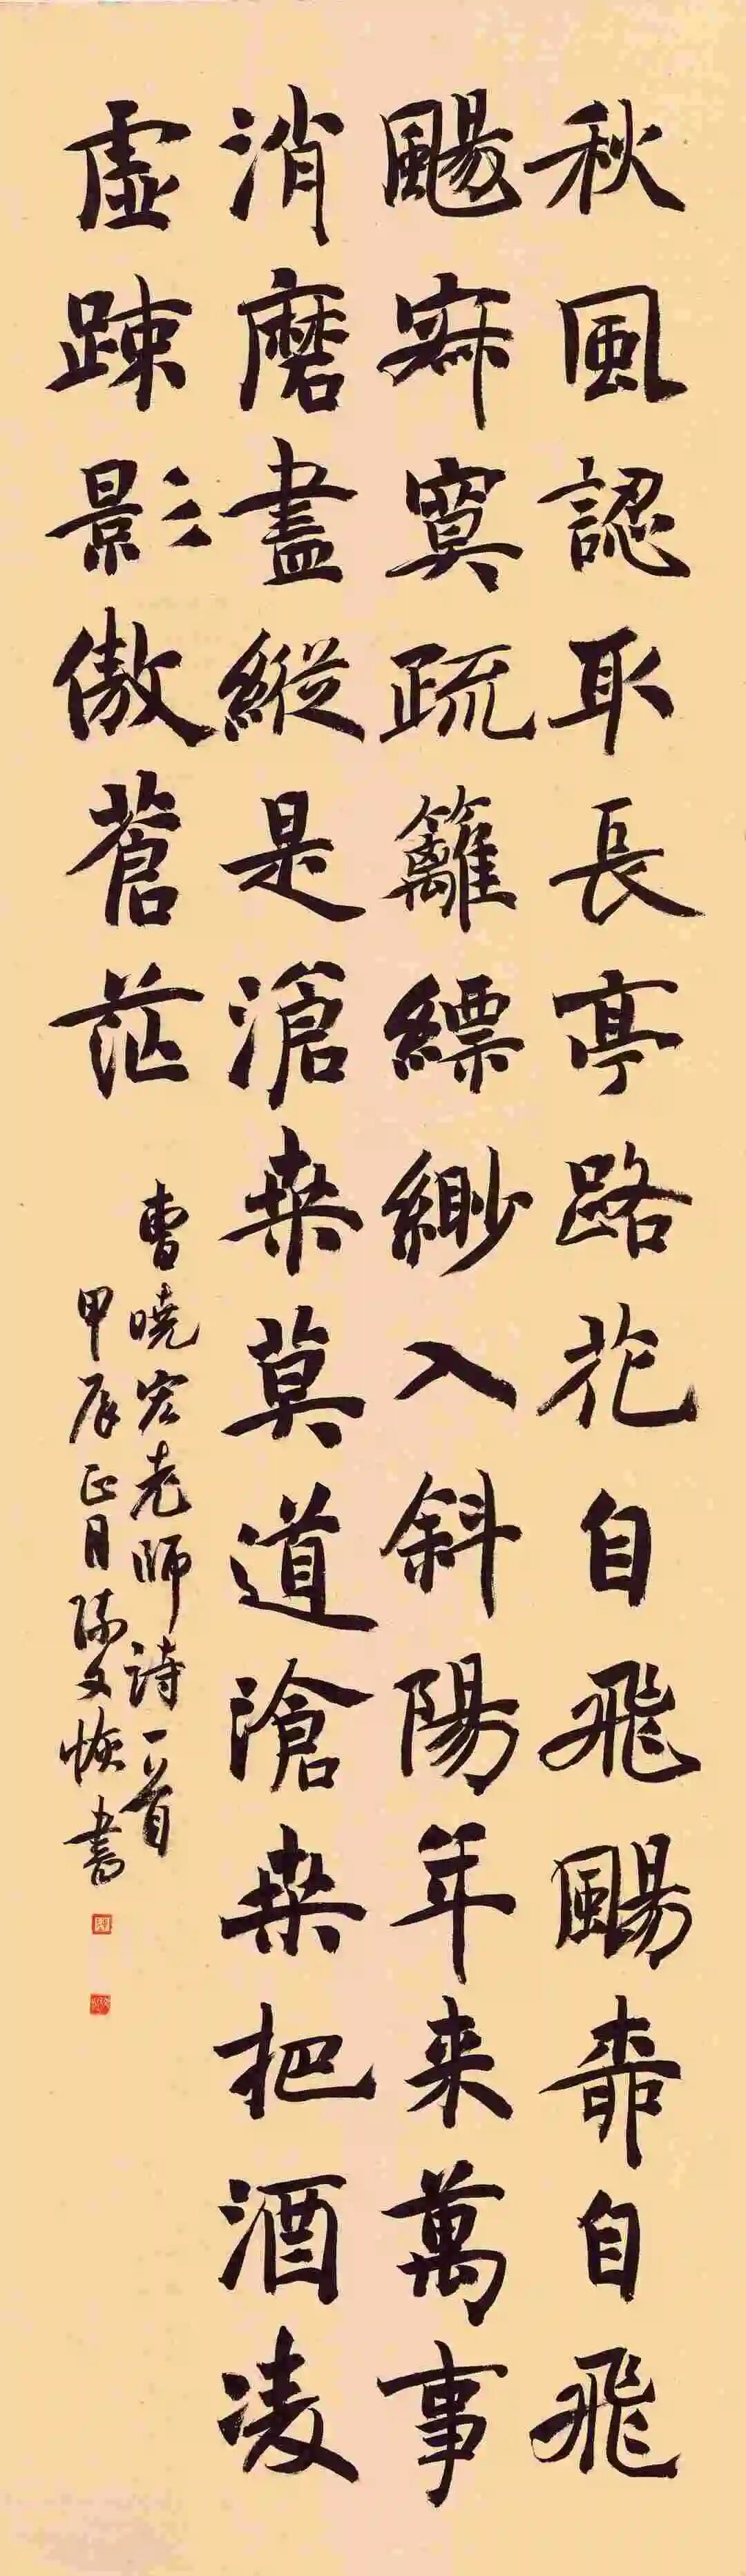 秋風認取長亭路花自飛颺柳自飛
颺寂寞疏籬縹緲入斜陽年来萬事
消磨盡縱是滄桑莫道滄桑把酒凌
虛踈影傲蒼茫
曹曉宏老師詩一首
甲辰正月陳文恢書